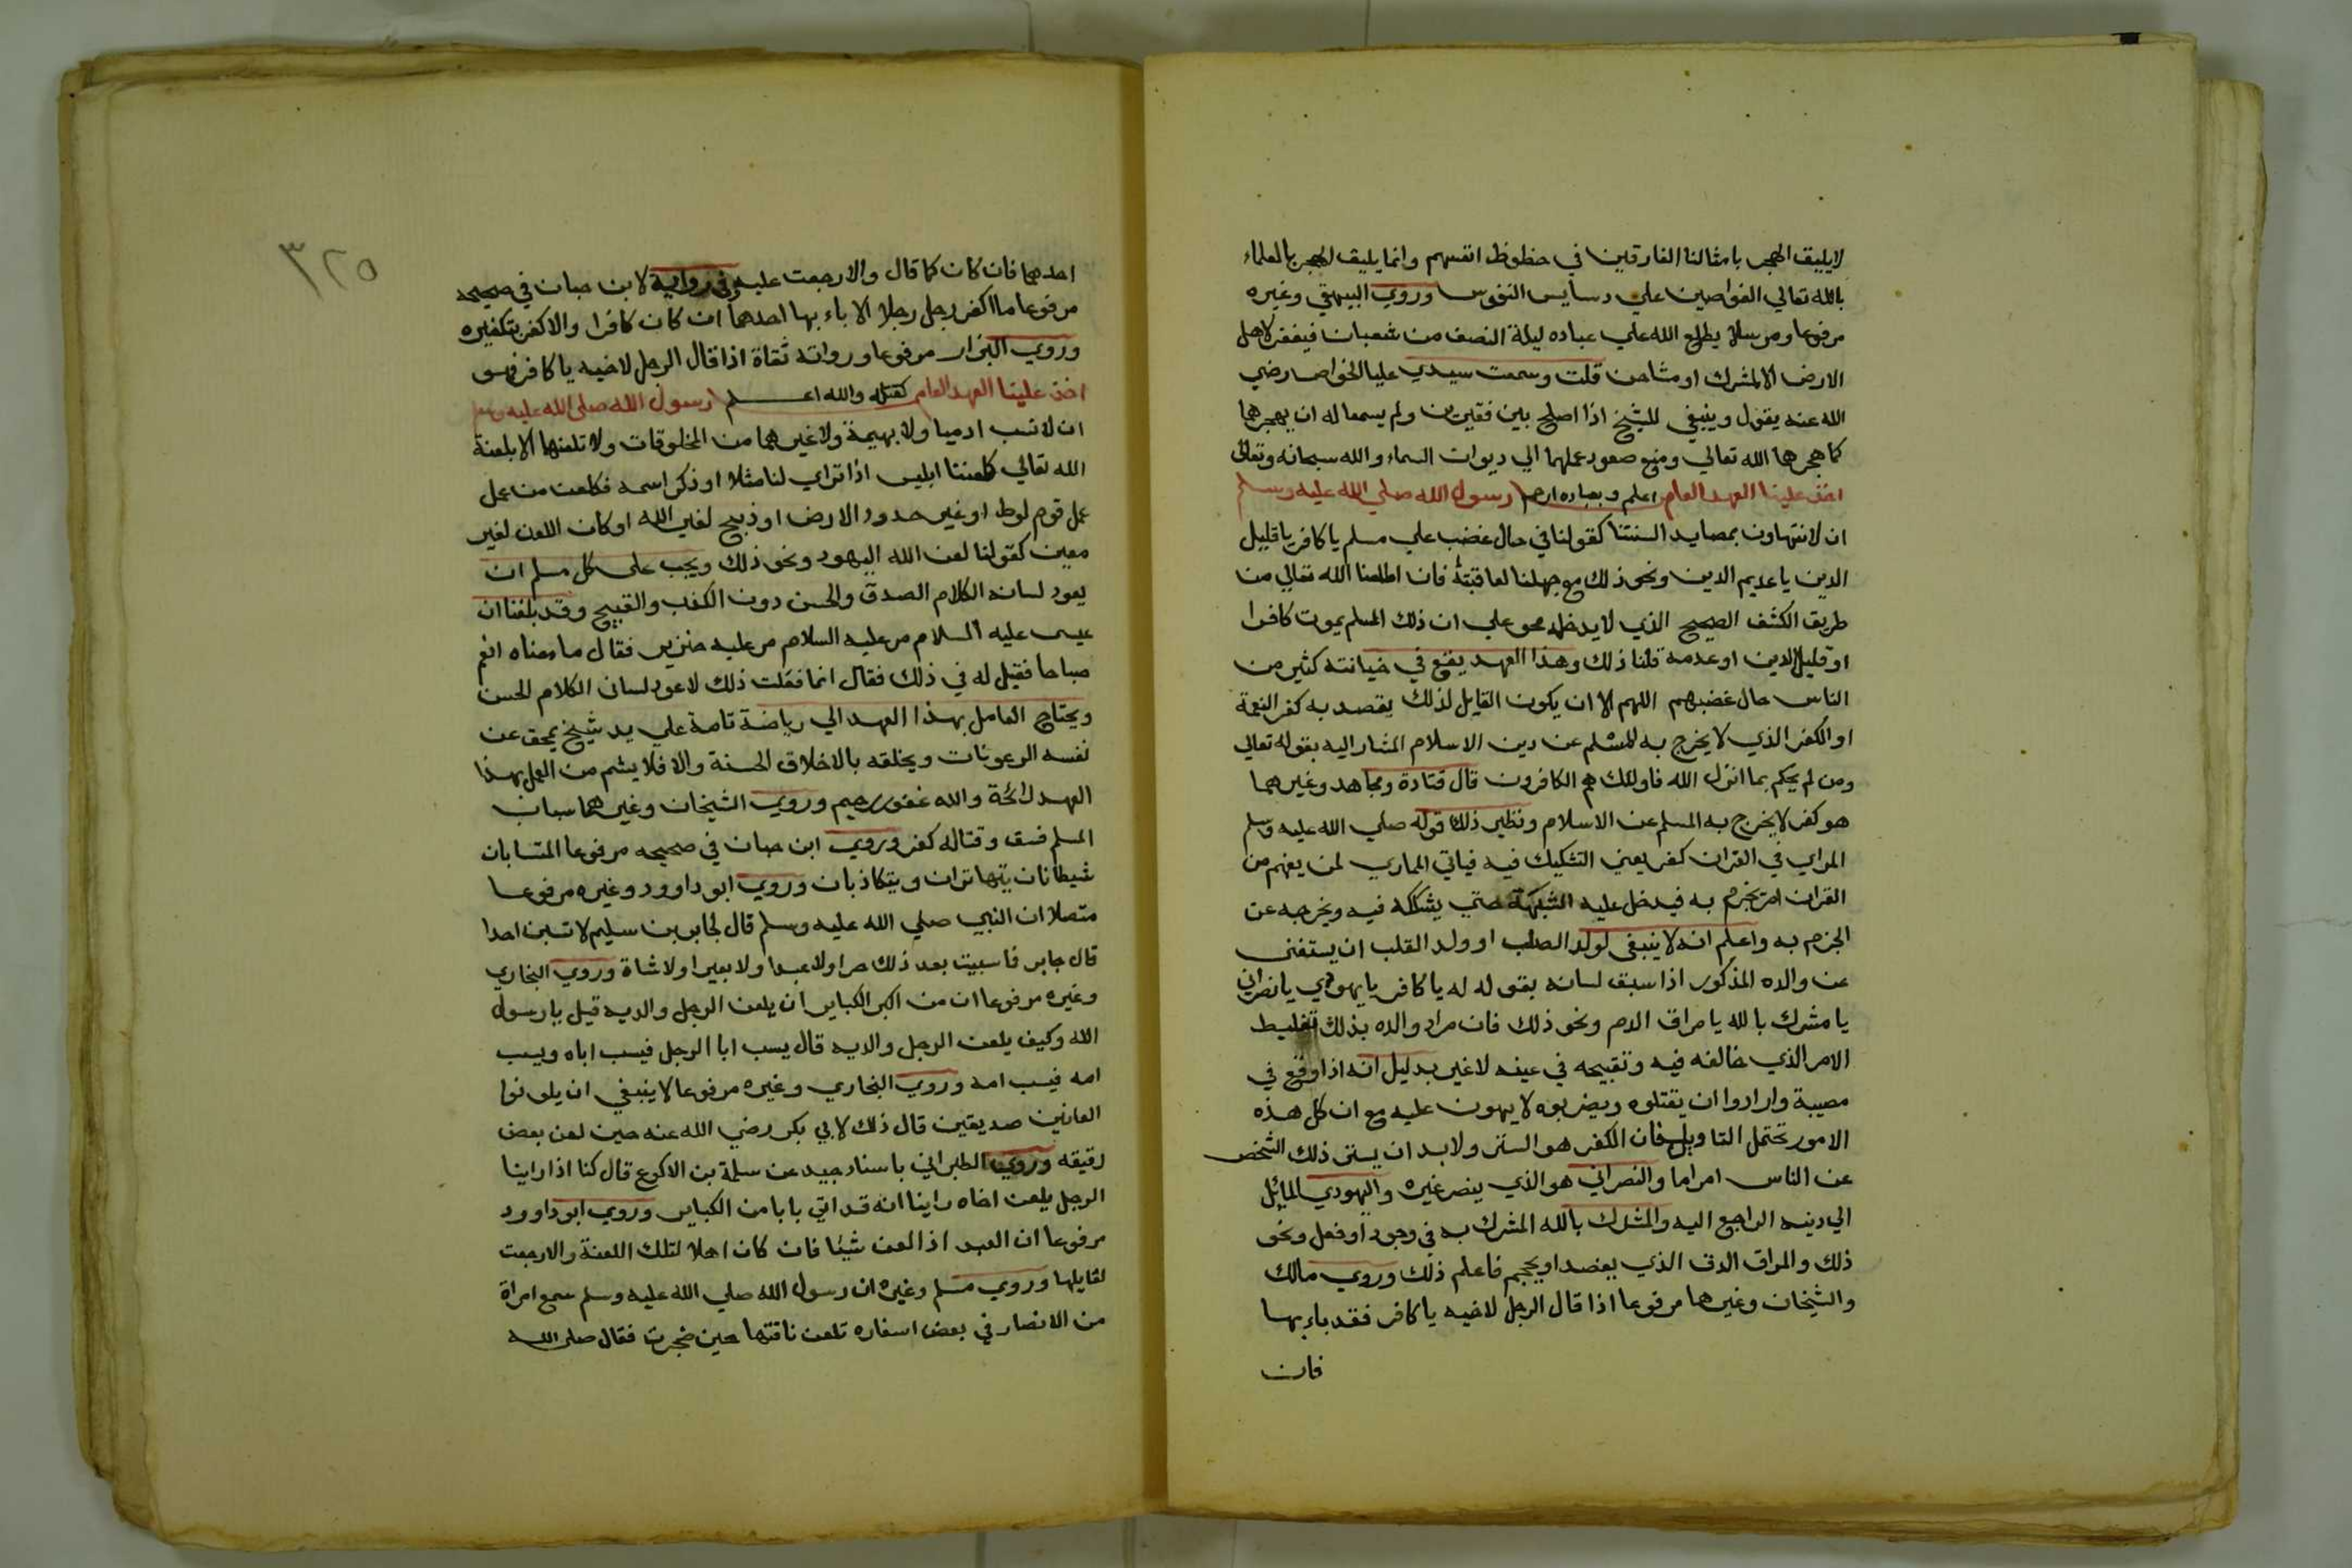 لايليق الهجر بامثالنا الغارقين في حظوظ انفسهم وانما يليق الهجر بالعلماء
بالله تعالي الغواصين علي دسايس النفوس وروي البيهقي وغيره
مرفوعا ومرسلا يطلع الله علي عباده ليلة النصف من شعبان فيغفر لاهل
الارض الا المشرك او مشاحن قلت وسمعت سيدي عليا الخواص رضي
الله عنه يقول وينبغي للشيخ اذا اصلح بين فقيرين ولم يسمعا له ان يهجرهما
كما هجرهما الله تعالي ومنع صعود عملهما الي ديوان السماء والله سبحانه وتعالى
اخذ علينا العهد العام اعلم وبعباده ارحم رسول الله صلي الله عليه وسلم
ان لا نتهاون بمصايد السنتنا كقولنا في حال غضب علي مسلم يا كافر يا قليل
الدين يا عديم الدين ونحو ذلك مع جهلنا لعاقبته فان اطلعنا الله تعالي من
طريق الكشف الصحيح الذي لا يدخله محو علي ان ذلك المسلم يموت كافرا
او قليل الدين او عدمه قلنا ذلك وهذا العهد يقع في خيانته كثير من
الناس حال غضبهم اللهم الا ان يكون القايل لذلك يقصد به كفر النعمة
او الكفر الذي لا يخرج به المسلم عن دين الاسلام المشار اليه بقوله تعالى
ومن لم يحكم بما انزل الله فاولئك هم الكافرون قال قتادة ومجاهد وغيرهما
هو كفر لا يخرج به المسلم عن الاسلام ونظير ذلك قوله صلي الله عليه وسلم
المراي في القران كفر يعني التشكيك فيه فياتي المماري لمن يفهم من
القران امر يجزم به فيدخل عليه الشبهة حتي يشككه فيه ويخرجه عن
الجزم به واعلم انه لا ينبغي لولد الصلب او ولد القلب ان يستغني
عن والده المذكور اذا سبق لسانه بقوله له يا كافر يا يهودي يا نصراني
يا مشرك بالله يا مراق الدم ونحو ذلك فان مراد والده بذلك تغليط
الامر الذي خالفه فيه وتقبيحه في عينه لا غير بدليل انه اذا وقع في
مصيبة وارادوا ان يقتلوه ويضربوه لا يهون عليه مع ان كل هذه
الامور تحتمل التاويل فان الكفر هو الستر ولابد ان يستر ذلك الشخص
عن الناس امر اما والنصراني هو الذي ينصر غيره واليهودي المايل
الي دينه الراجع اليه والمشرك بالله المشرك به في وجود او فعل ونحو
ذلك والمراق الدم الذي يفصد او يحجم فاعلم ذلك وروي مالك
والشيخان وغيرهما مرفوعا اذا قال الرجل لاخيه يا كافر فقد باء بها
فان
٣٢٥
احدهما فان كان كما قال والا رجعت عليه وفي رواية لابن حبان في صحيحه
مرفوعا ما اكفر رجل رجلا الا باء بها احدهما ان كان كافرا والا كفر بتكفيره
وروي البزار مرفوعا ورواته ثقاة اذا قال الرجل لاخيه يا كافر فهو
اخذ علينا العهد العام كقتله والله اعلم رسول الله صلى الله عليه وسلم
ان لا نسب ادميا ولا بهيمة ولا غيرهما من المخلوقات ولا نلعنها الا بلعنة
الله تعالي كلعننا ابليس اذا تراي لنا مثلا او ذكر اسمه فكلعن من عمل
عمل قوم لوط او غير حدود الارض او ذبح لغير الله او كان اللعن لغير
معين كقولنا لعن الله اليهود ونحو ذلك ويجب على كل مسلم ان
يعود لسانه الكلام الصدق والحسن دون الكذب والقبيح وقد بلغنا ان
عيسى عليه السلام مر عليه السلام مر عليه خنزير فقال ما معناه انعم
صباحا فقيل له في ذلك فقال انما فعلت ذلك لاعود لساني الكلام الحسن
ويحتاج العامل بهذا العهد الي رياضة تامة علي يد شيخ يمحق عن
نفسه الرعونات ويخلقه بالاخلاق الحسنة والا فلا يشم من العمل بهذا
العهد رائحة والله غفور رحيم وروي الشيخان وغيرهما سباب
المسلم فسق وقتاله كفر وروي ابن حبان في صحيحه مرفوعا المتسابان
شيطانان يتهاتران ويتكاذبان وروي ابو داوود وغيره مرفوعا
متصلا ان النبي صلي الله عليه وسلم قال لجابر بن سليم لا تسبن احدا
قال جابر فما سبيت بعد ذلك حرا ولا عبدا ولا بعيرا ولا شاة وروي البخاري
وغيره مرفوعا ان من اكبر الكباير ان يلعن الرجل والديه قيل يا رسول
الله وكيف يلعن الرجل والديه قال يسب ابا الرجل فيسب اباه ويسب
امه فيسب امه وروي البخاري وغيره مرفوعا لا ينبغي ان يلونوا
لعانين صديقين قال ذلك لابي بكر رضي الله عنه حين لعن بعض
رقيقه وروي الطبراني باسناد جيد عن سلمة بن الاكوع قال كنا اذا راينا
الرجل يلعن اخاه راينا انه قد اتي بابا من الكباير وروي ابو داوود
مرفوعا ان العبد اذا لعن شيئا فان كان اهلا لتلك اللعنة والا رجعت
لقايلها وروي مسلم وغيره ان رسول الله صلي الله عليه وسلم سمع امراة
من الانصار في بعض اسفاره تلعن ناقتها حين ضجرت فقال صلى الله